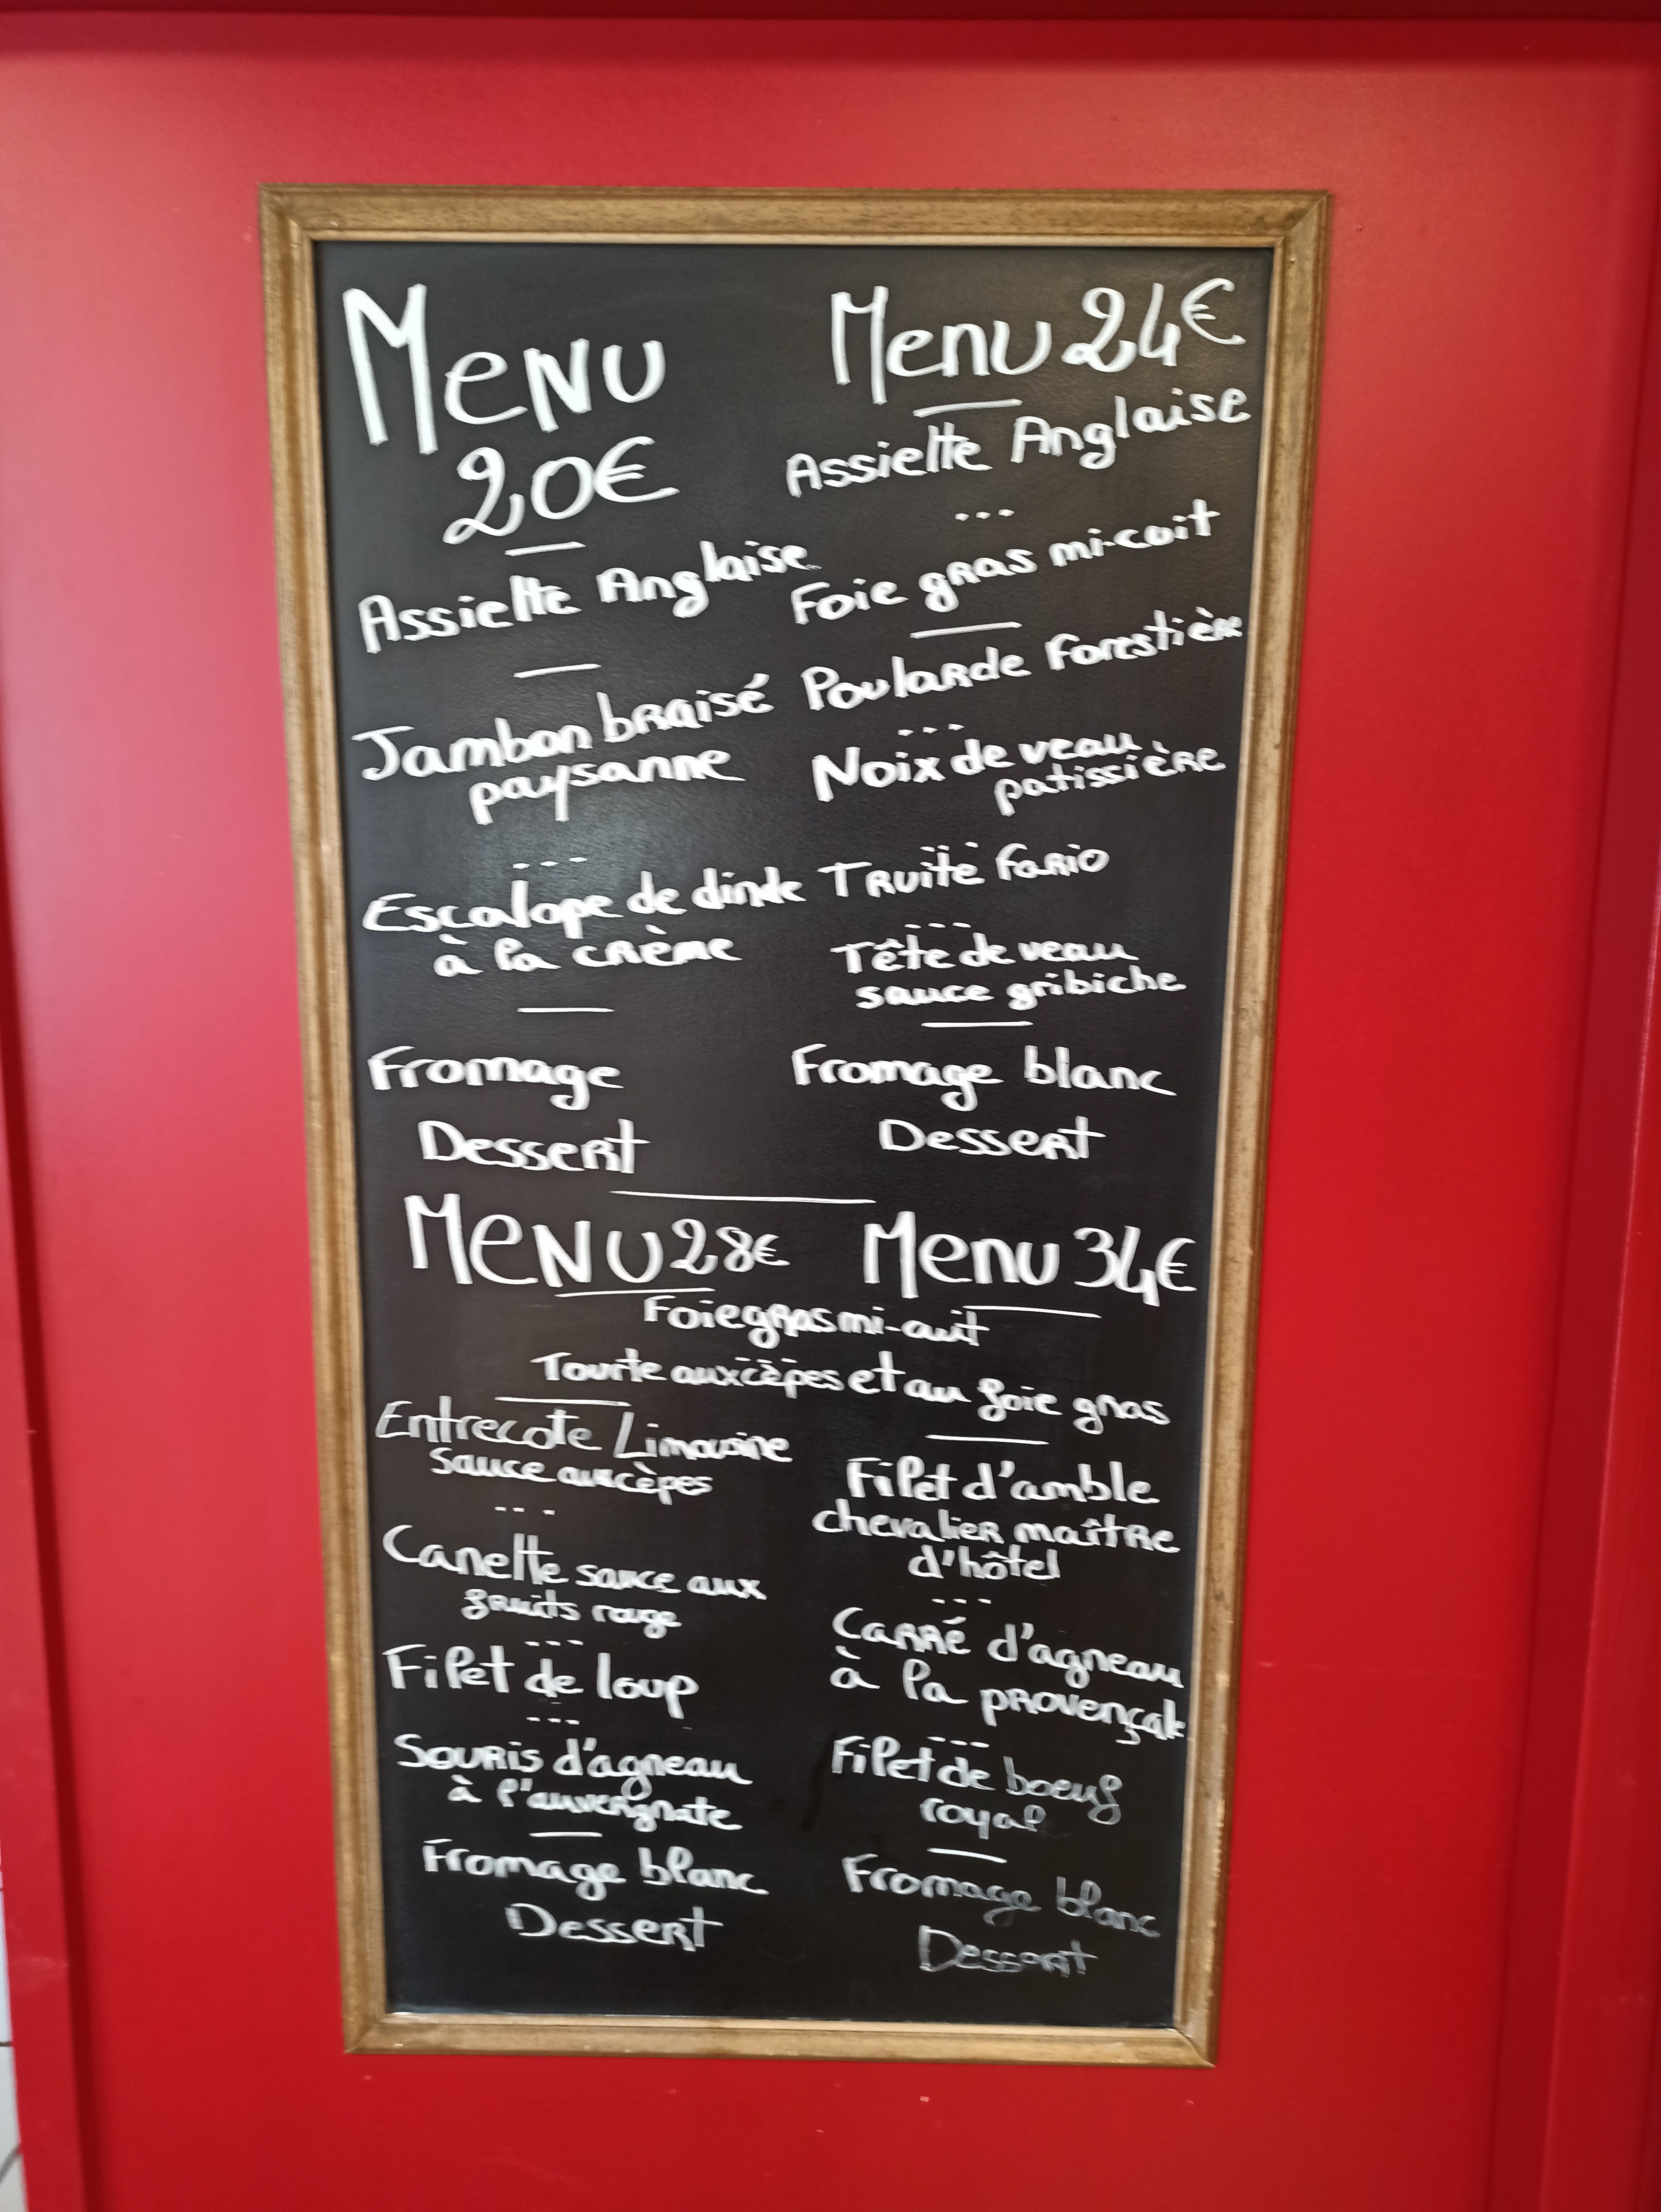 Menu
20€
Assiette Anglaise
Jambon braisé
paysanne
Escalope de dinde
à la crème
Fromage
Dessert
Menu 24€
Assiette Anglaise
Foie gras mi-cuit
Poularde forestière
Noix de veau
patissière
Truite fario
Tête de veau
sauce gribiche
Fromage blanc
Dessert
Menu 28€
Menu 34€
Foie gras mi-cuit
Tourte aux cèpes et au foie gras
Entrecote Limousine
Sauce aux cèpes
Canette sauce aux
fruits rouge
Filet de loup
Souris d'agneau
à l'auvergnate
Fromage blanc
Dessert
Filet d'amble
chevalier maître
d'hôtel
Carré d'agneau
à la provençale
Filet de boeuf
royal
Fromage blanc
Dessert